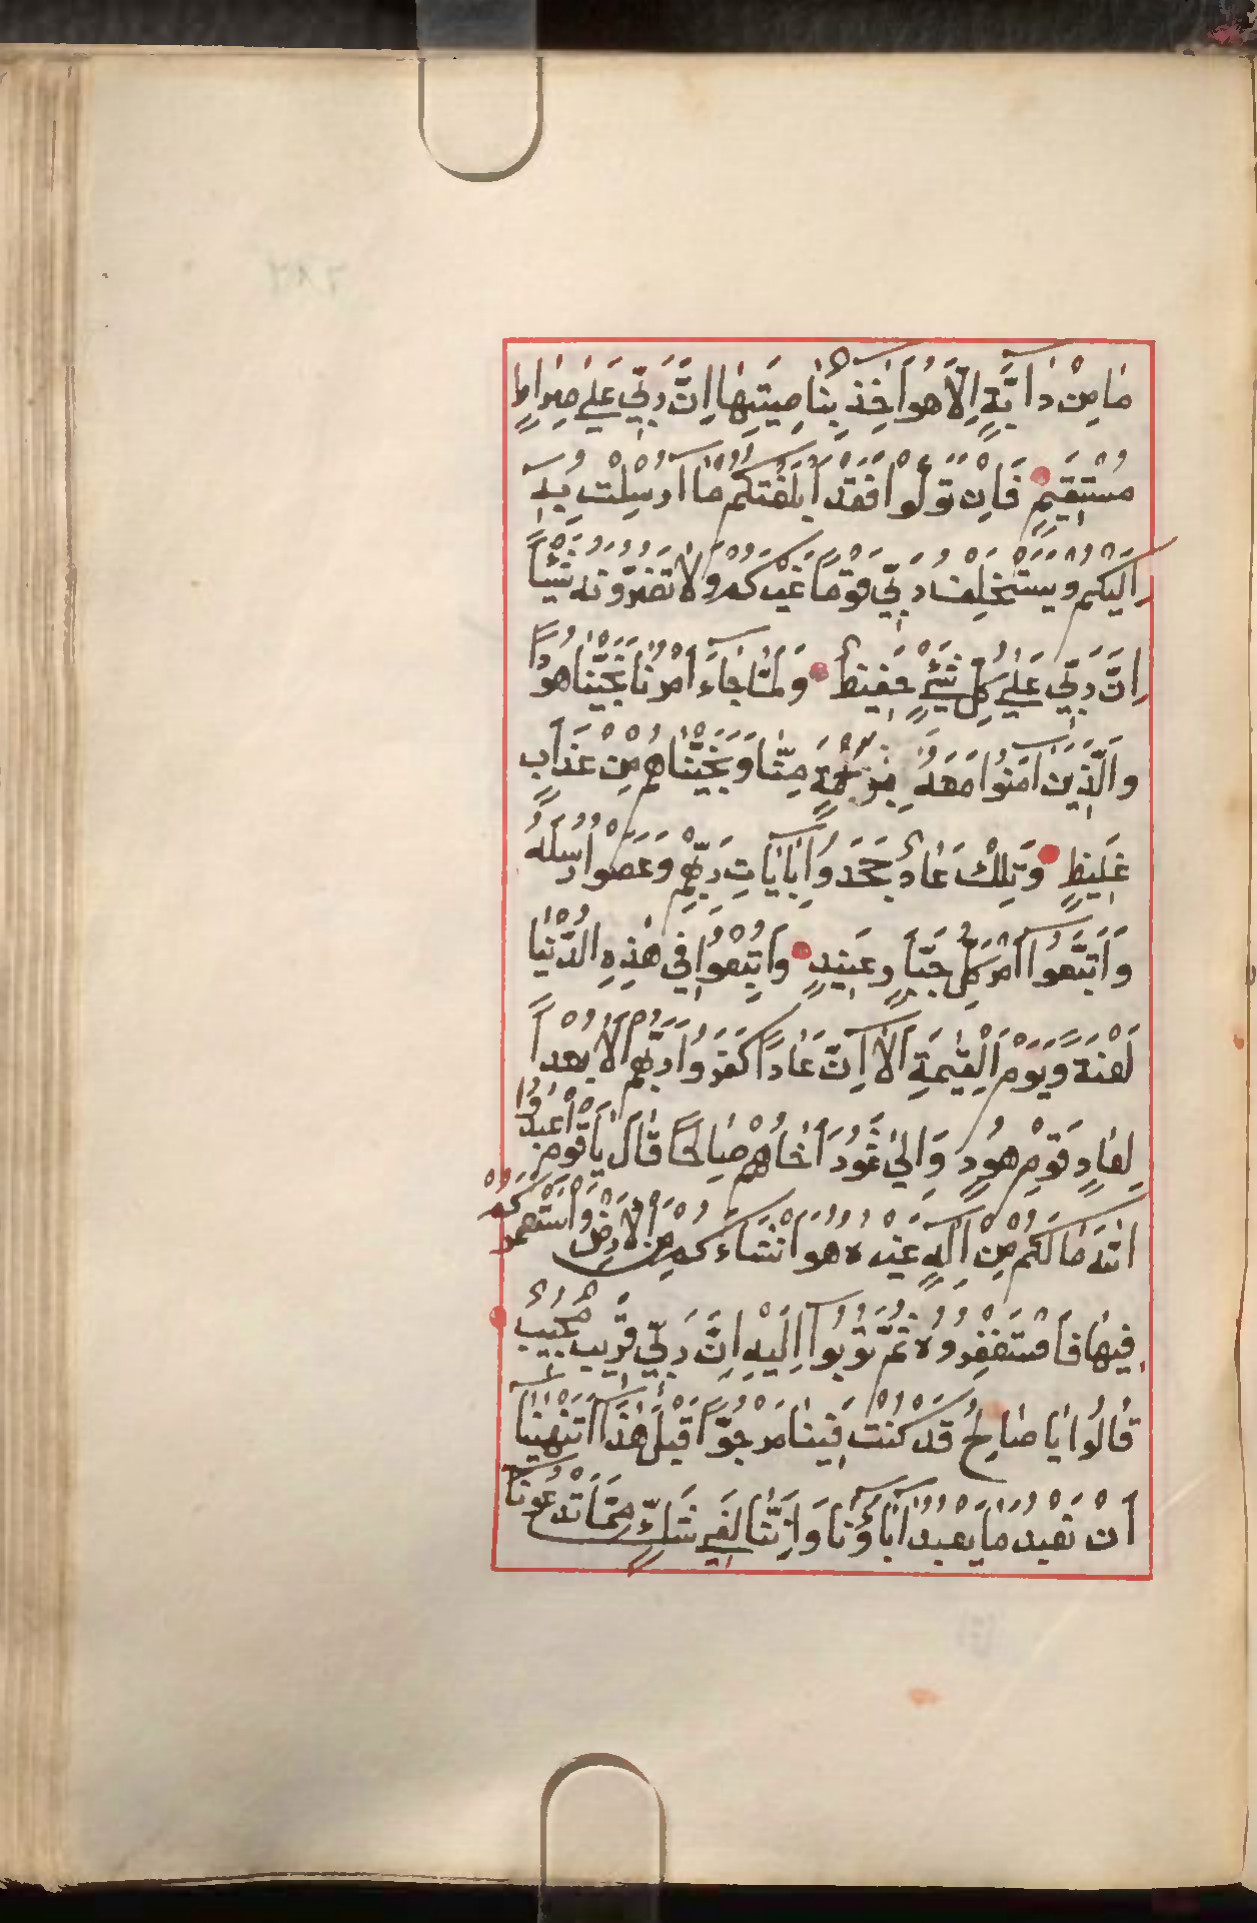 مَا مِنْ دَابَّةٍ اِلَّا هُوَ اٰخِذٌ بِنَاصِيَتِهَا اِنَّ رَبِّي عَلٰي صِرَاطٍ
مُسْتَقِيمٍ فَاِنْ تَوَلَّوْا فَقَدْ اَبْلَغْتُكُمْ مَا اُرْسِلْتُ بِهٖ
اِلَيْكُمْ وَيَسْتَخْلِفُ رَبِّي قَوْمًا غَيْرَكُمْ وَلَا تَضُرُّونَهُ شَيْئًا
اِنَّ رَبِّي عَلٰي كُلِّ شَيْءٍ حَفِيظٌ وَلَمَّا جَاءَ اَمْرُنَا نَجَّيْنَا هُودًا
وَالَّذِينَ اٰمَنُوا مَعَهُ بِرَحْمَةٍ مِنَّا وَنَجَّيْنَاهُمْ مِنْ عَذَابٍ
غَلِيظٍ وَتِلْكَ عَادٌ جَحَدُوا بِاٰيَاتِ رَبِّهِمْ وَعَصَوْا رُسُلَهُ
وَاتَّبَعُوا اَمْرَ كُلِّ جَبَّارٍ عَنِيدٍ وَاُتْبِعُوا فِي هٰذِهِ الدُّنْيَا
لَعْنَةً وَيَوْمَ الْقِيٰمَةِ اَلَا اِنَّ عَادًا كَفَرُوا رَبَّهُمْ اَلَا بُعْدًا
لِعَادٍ قَوْمِ هُودٍ وَاِلٰي ثَمُودَ اَخَاهُمْ صَالِحًا قَالَ يَا قَوْمِ اعْبُدُوا
اللّٰهَ مَا لَكُمْ مِنْ اِلٰهٍ غَيْرُهُ هُوَ اَنْشَاَكُمْ مِنَ الْاَرْضِ وَاسْتَعْمَرَكُمْ
فِيهَا فَاسْتَغْفِرُوهُ ثُمَّ تُوبُوا اِلَيْهِ اِنَّ رَبِّي قَرِيبٌ مُجِيبٌ
قَالُوا يَا صَالِحُ قَدْ كُنْتَ فِينَا مَرْجُوًّا قَبْلَ هٰذَا اَتَنْهٰينَا
اَنْ نَعْبُدَ مَا يَعْبُدُ اٰبَاؤُنَا وَاِنَّنَا لَفِي شَكٍّ مِمَّا تَدْعُونَا